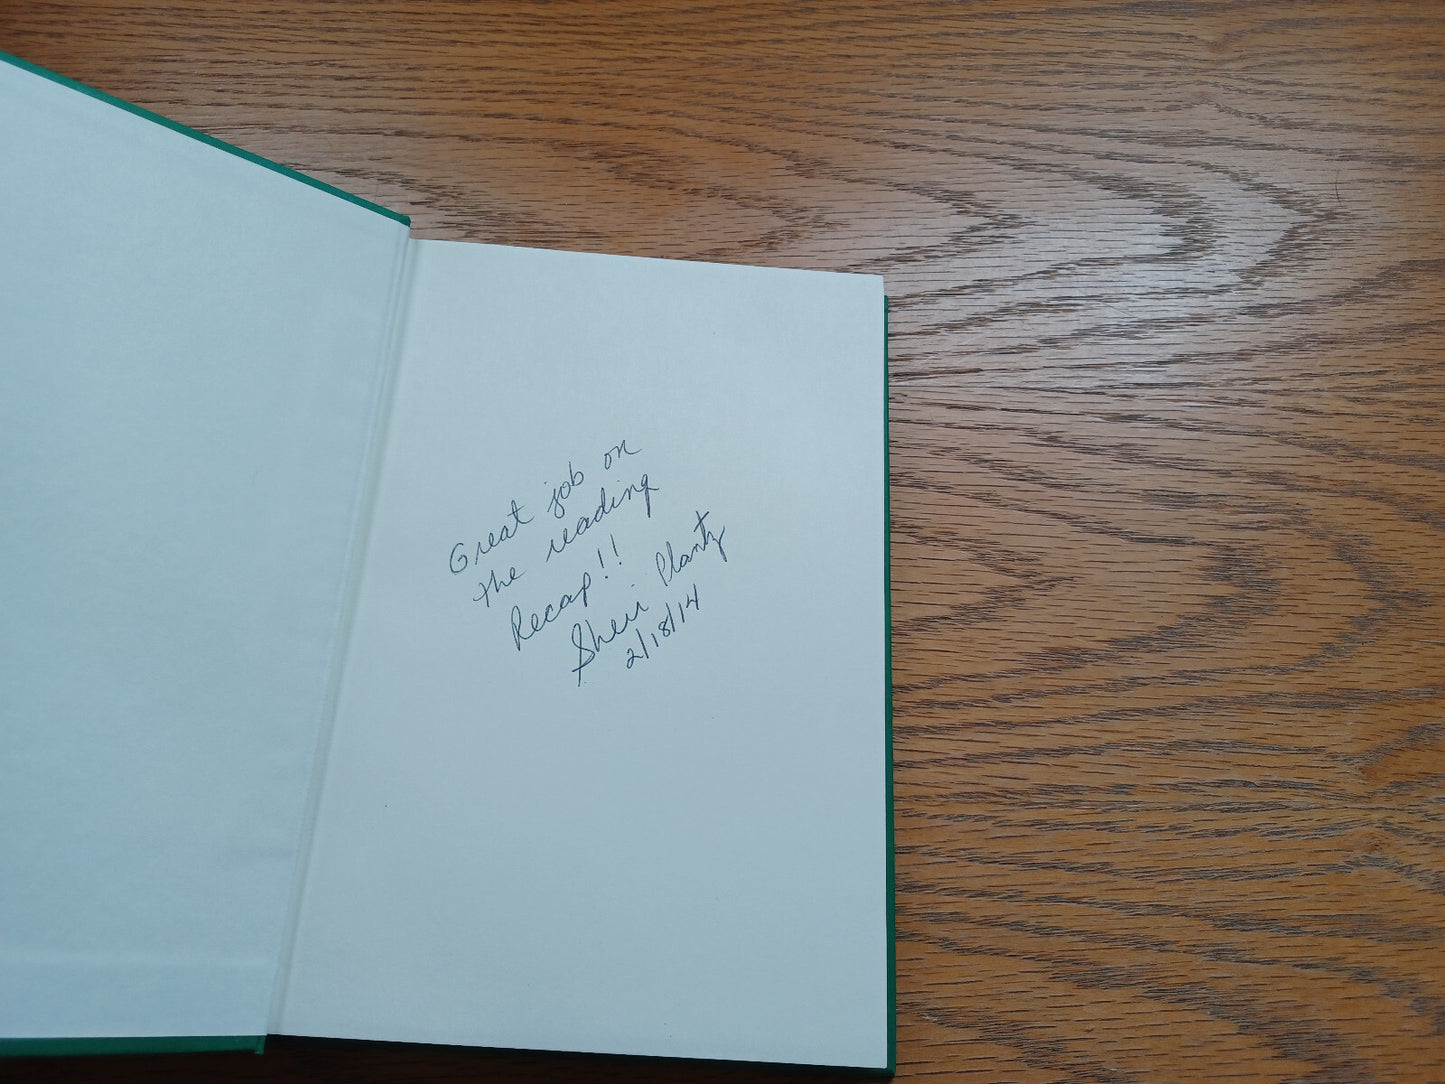 Great job on
the reading
Recap!!
Sheri Plantz
2/18/14